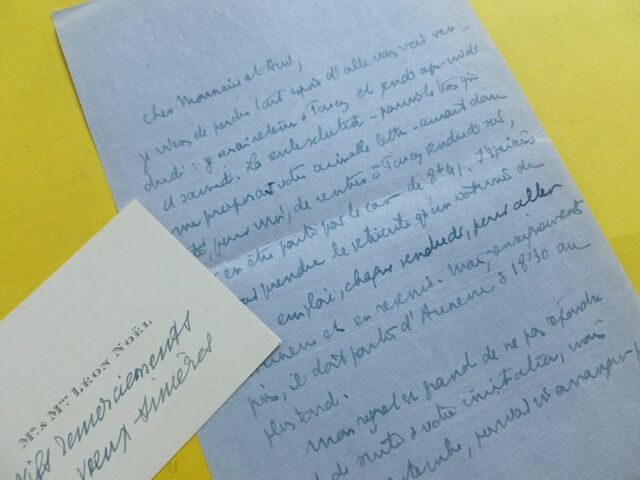 cher Monsieur et Ami,
je viens de perdre tout espoir d'aller vous voir ven-
dredi : je serai retenu à Toucy et jeudi après-midi
et samedi. La seule solution - parmi celles que
me proposait votre aimable lettre - aurait donc
été, pour moi, de rentrer à Toucy vendredi soir,
en être parti par le car de 8h41. J'espérais
prendre le
emploi, chaque vendredi, pour aller
et en revenir. Mais, renseignements
pris, il doit partir d'Auxerre à 18h30 au
plus tard.
Mon regret est grand de ne pas répondre
de suite à votre invitation, mais
pourrait s'arranger
Mr & Mme LÉON NOËL
Vifs remerciements
voeux sincères